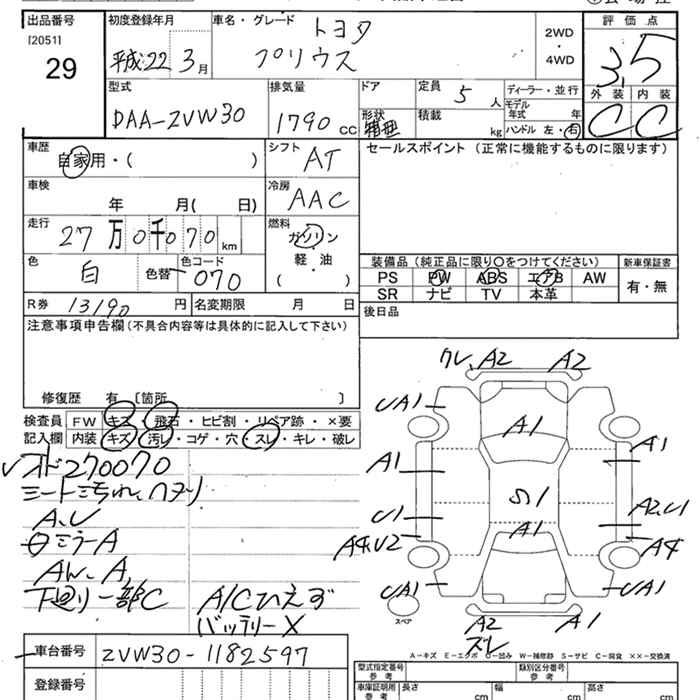 出品番号 初度登録年月 車名・グレード トヨタ 評価点
[2051] 2WD
29 平成22 3月 プリウス ・ 3.5
4WD
型式 排気量 ドア 定員 5人 ディーラー・並行 外装 内装
DAA-ZVW30 1790 CC 形状 箱型 積載 kg モデル年式 年 C C
ハンドル 左・右
車歴 自家用・( ) シフト AT セールスポイント (正常に機能するものに限ります)
車検 年 月( 日) 冷房 AAC
走行 27万0千070km 燃料 ガソリン
軽・油
( )
色 白 色替 色コード 070 装備品(純正品に限り○をつけてください) 新車保証書
PS PW ABS エアB AW 有・無
SR ナビ TV 本革
R券 13190円 名変期限 月 日 後日品
注意事項申告欄(不具合内容等は具体的に記入して下さい)
修復歴 有 [箇所 ]
検査員 FW キズ・飛石・ヒビ割・リペア跡・×要
記入欄 内装 キズ・汚レ・コゲ・穴・スレ・キレ・破レ
270070
A、U
ミラーA
A
下廻り一部C A/Cひえず
バッテリーX
A2 A2
UA1 A1
A1 A1
S1
U1 A1 A2、U1
A4U2 A4
UA1 UA1
スペア
A2 A1
ズレ
A-キズ E-エクボ U-凹み W-補修跡 S-サビ C-腐食 XX-交換済
車台番号 ZVW30-1182597
登録番号
型式指定番号 類別区分番号
参考 参考
車庫証明用 長さ cm 幅 cm 高さ cm
参考